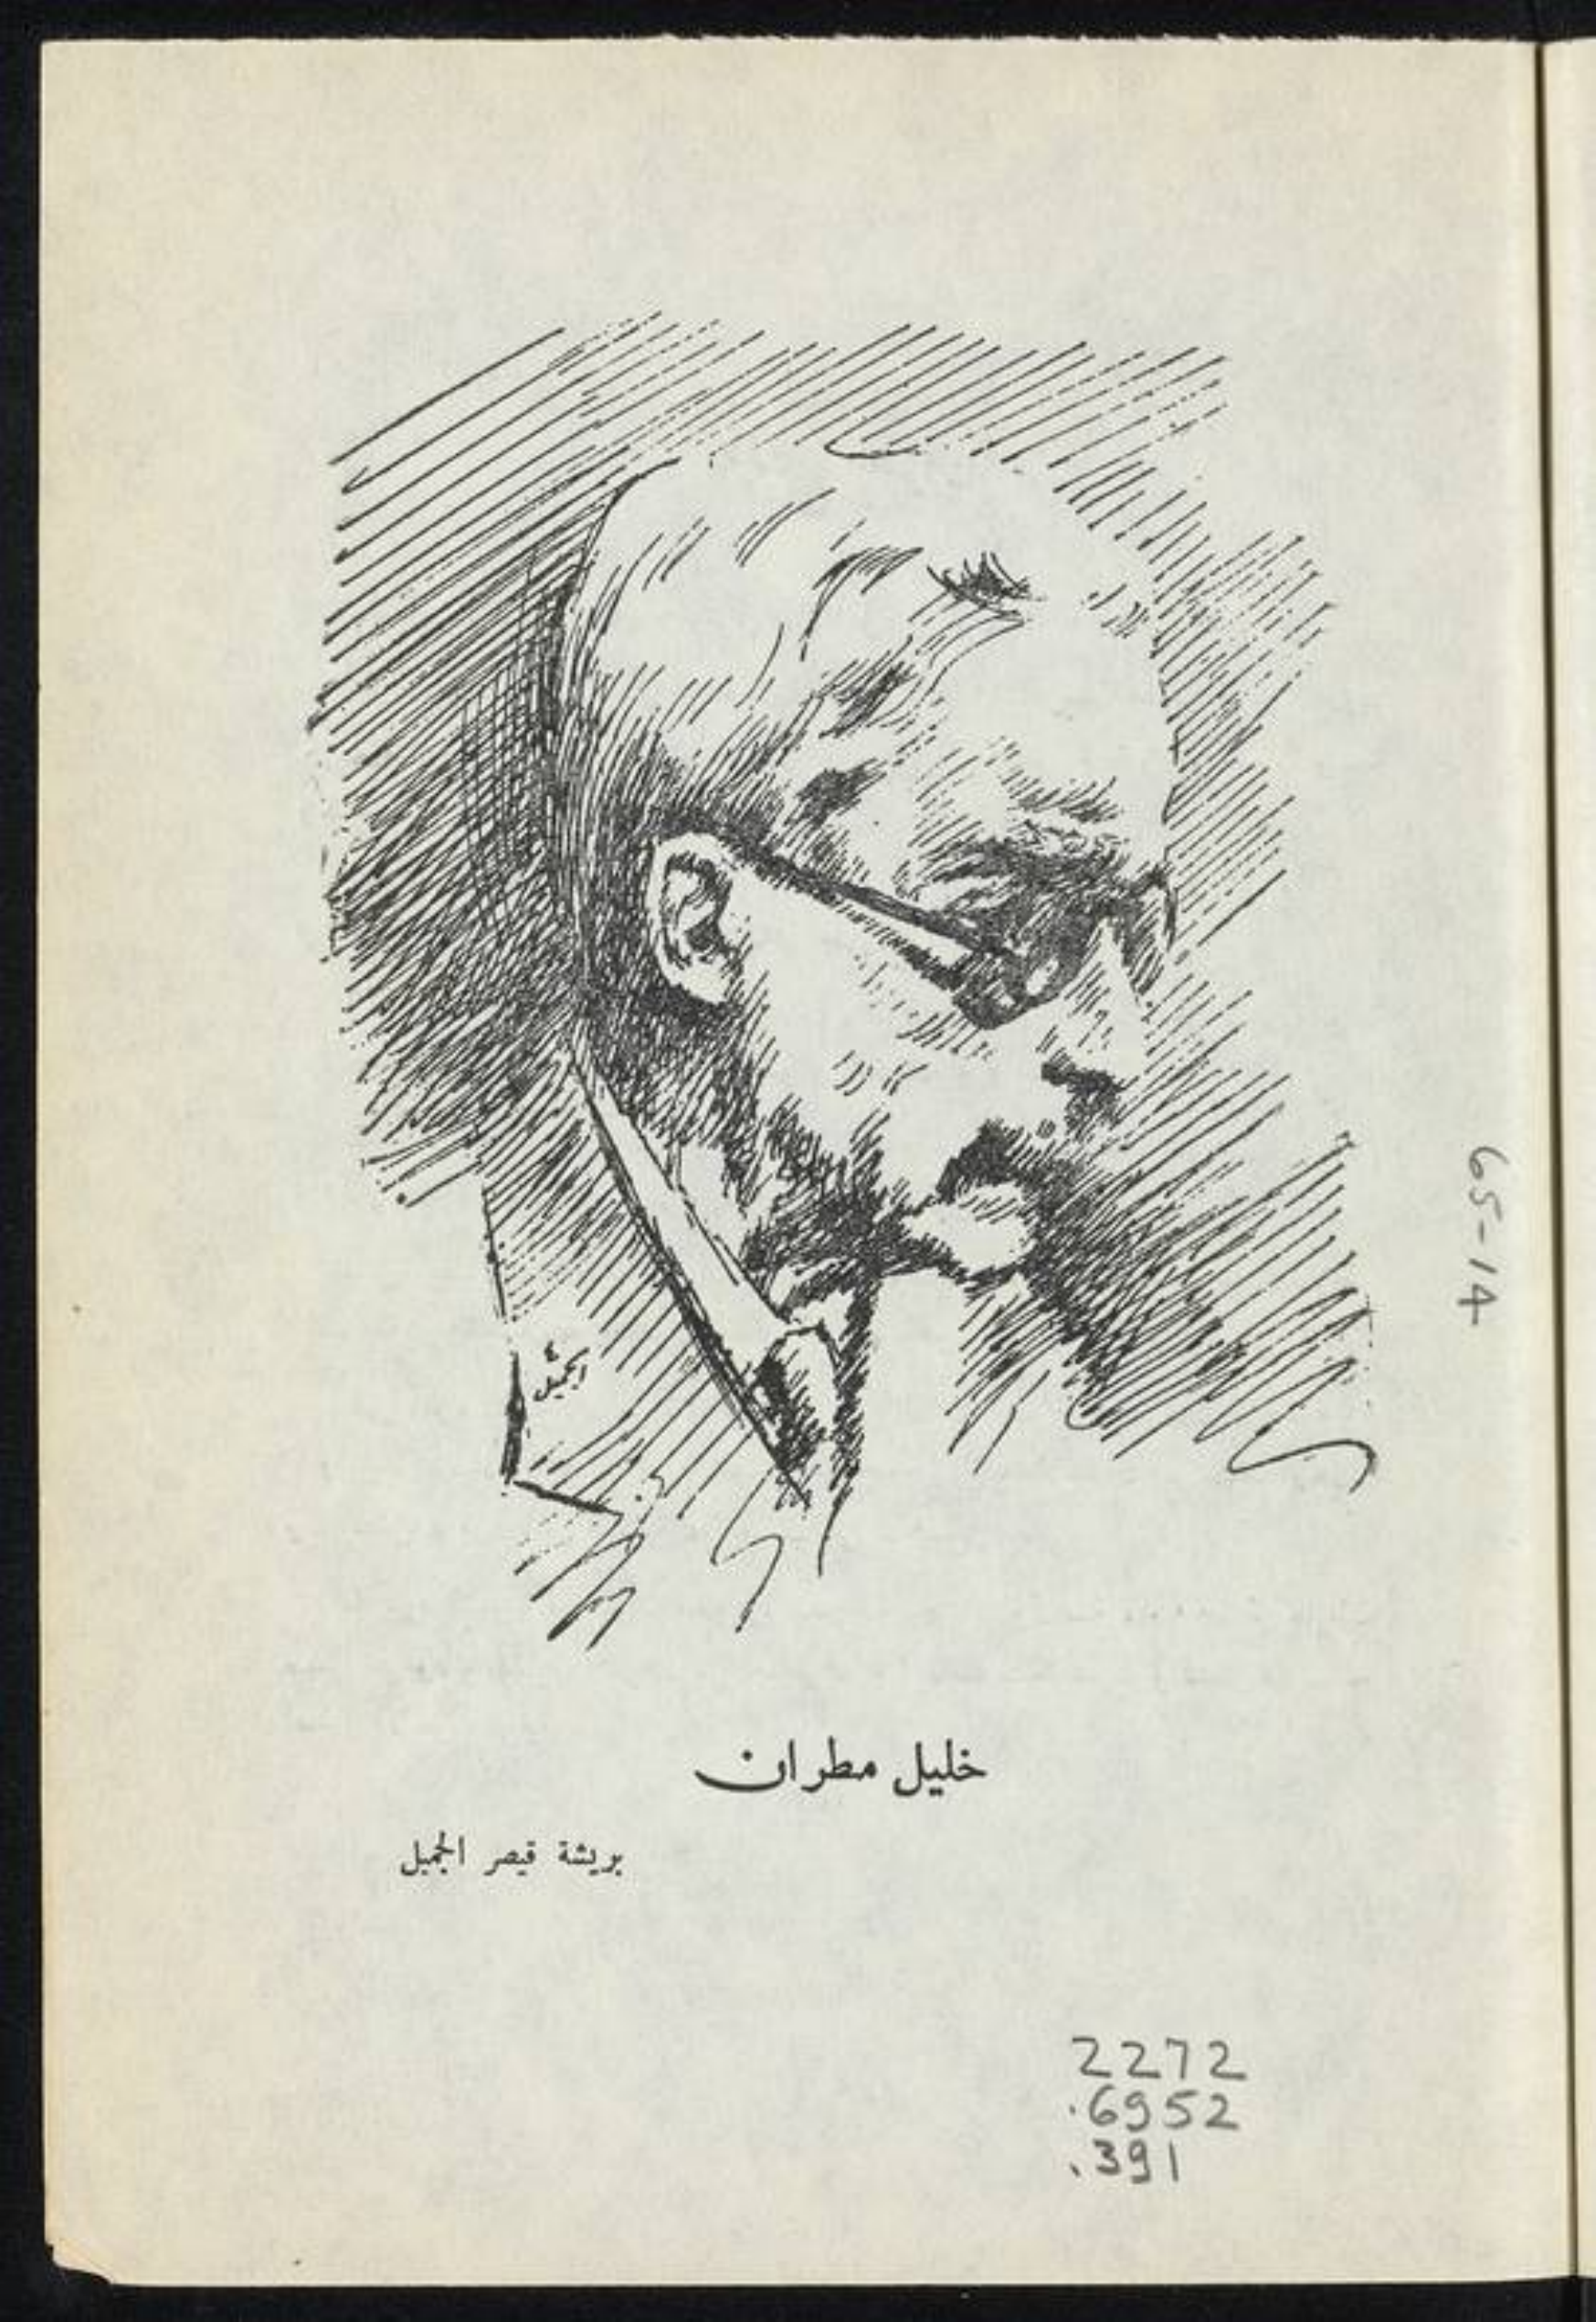 الجميل
خليل مطران
بريشة قيصر الجميل
65-14
2272
.6952
.391